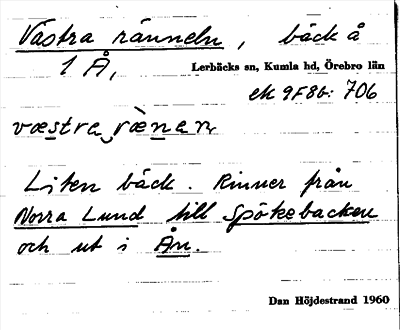 Västra ränneln, bäck å
1 Å,
Lerbäcks sn, Kumla hd, Örebro län
ek 9F8b: 706
væstra rænan
Liten bäck. Rinner från
Norra Lund till Spökebacken
och ut i Ån.
Dan Höjdestrand 1960